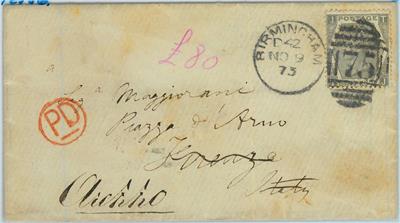 £80
BIRMINGHAM
D42
NO 9
73
POSTAGE
75
PD
Maggiorani
Piazza d'Arno
Firenze
Italy